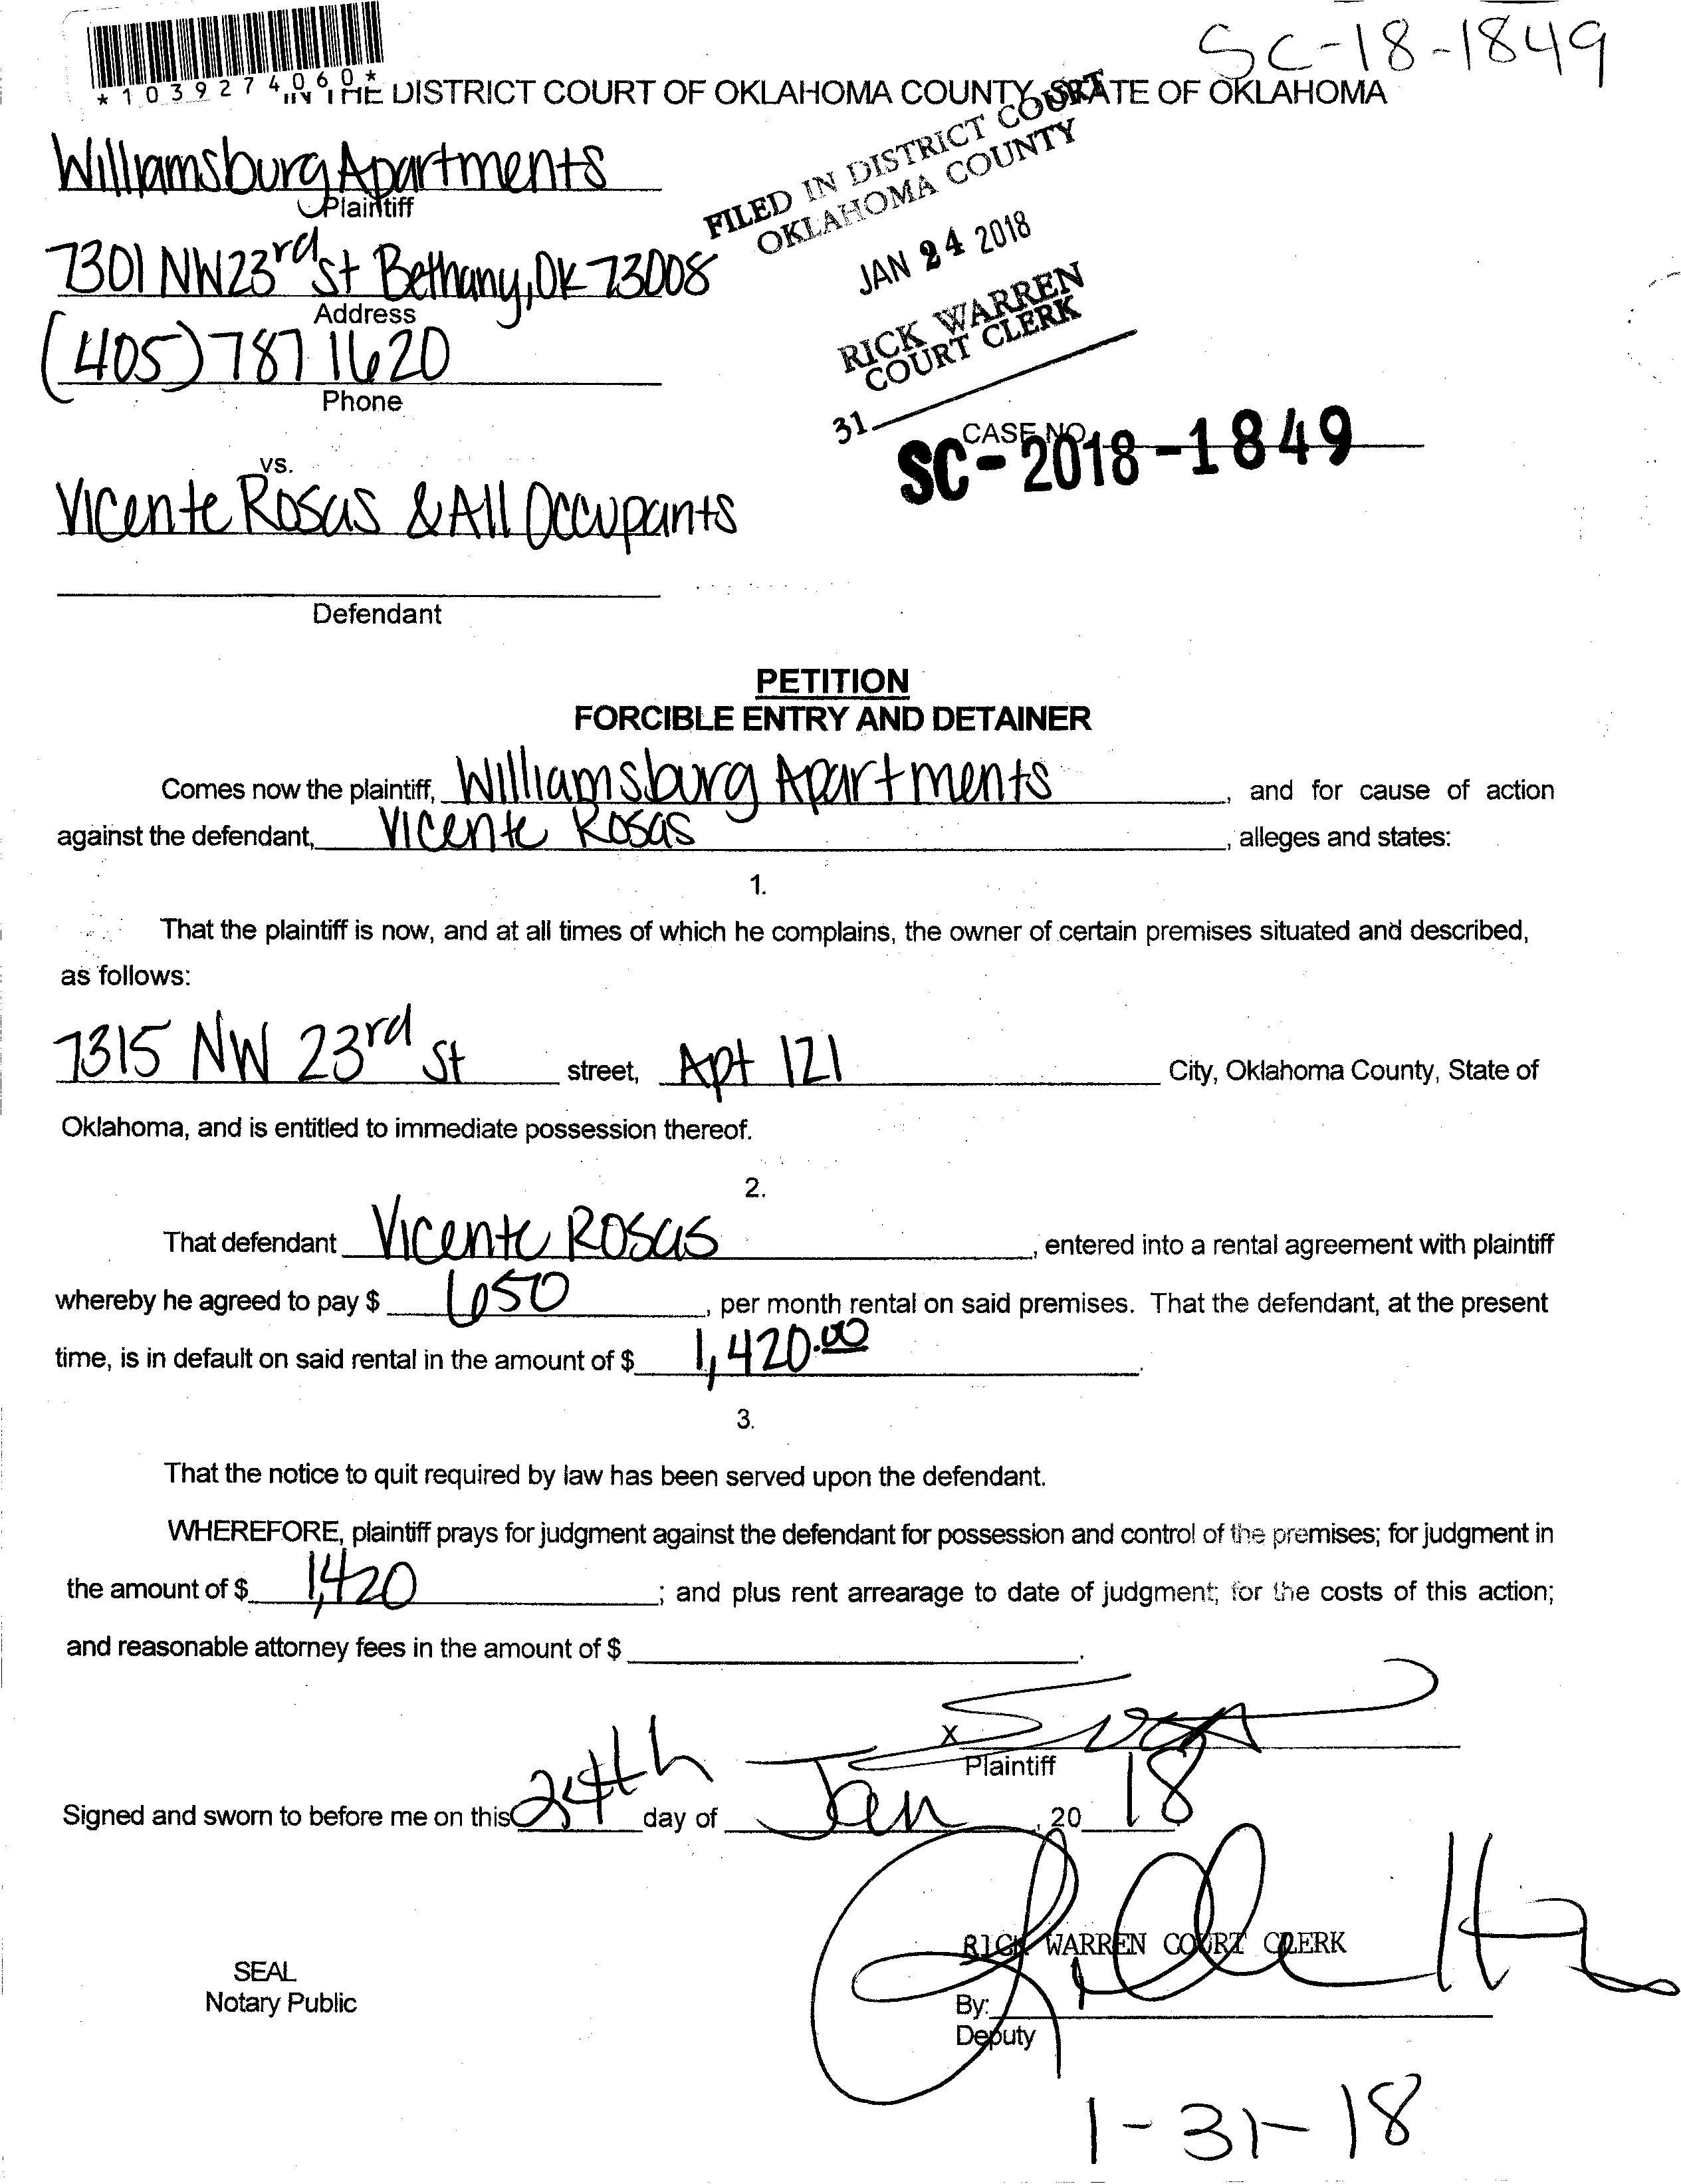 SC-18-1849
*1039274060*
IN THE DISTRICT COURT OF OKLAHOMA COUNTY, STATE OF OKLAHOMA
FILED IN DISTRICT COURT
OKLAHOMA COUNTY
JAN 24 2018
RICK WARREN
COURT CLERK
31
Williamsburg Apartments
Plaintiff
7301 NW 23rd St Bethany, OK 73008
Address
(405) 787 1620
Phone
CASE NO.
SC-2018-1849
vs.
Vicente Rosas & All Occupants
Defendant
PETITION
FORCIBLE ENTRY AND DETAINER
Comes now the plaintiff, Williamsburg Apartments, and for cause of action
against the defendant, Vicente Rosas, alleges and states:
1.
That the plaintiff is now, and at all times of which he complains, the owner of certain premises situated and described,
as follows:
7315 NW 23rd St street, Apt 121 City, Oklahoma County, State of
Oklahoma, and is entitled to immediate possession thereof.
2.
That defendant Vicente Rosas, entered into a rental agreement with plaintiff
whereby he agreed to pay $ 650, per month rental on said premises. That the defendant, at the present
time, is in default on said rental in the amount of $ 1,420.00.
3.
That the notice to quit required by law has been served upon the defendant.
WHEREFORE, plaintiff prays for judgment against the defendant for possession and control of the premises; for judgment in
the amount of $ 1,420; and plus rent arrearage to date of judgment; for the costs of this action;
and reasonable attorney fees in the amount of $ .
X
Plaintiff
Signed and sworn to before me on this 24th day of Jan, 20 18.
RICK WARREN COURT CLERK
SEAL
Notary Public
By:
Deputy
1-31-18